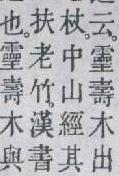 云。靈壽木出
杖。中山經其
扶老竹。漢書
也。靈壽木與